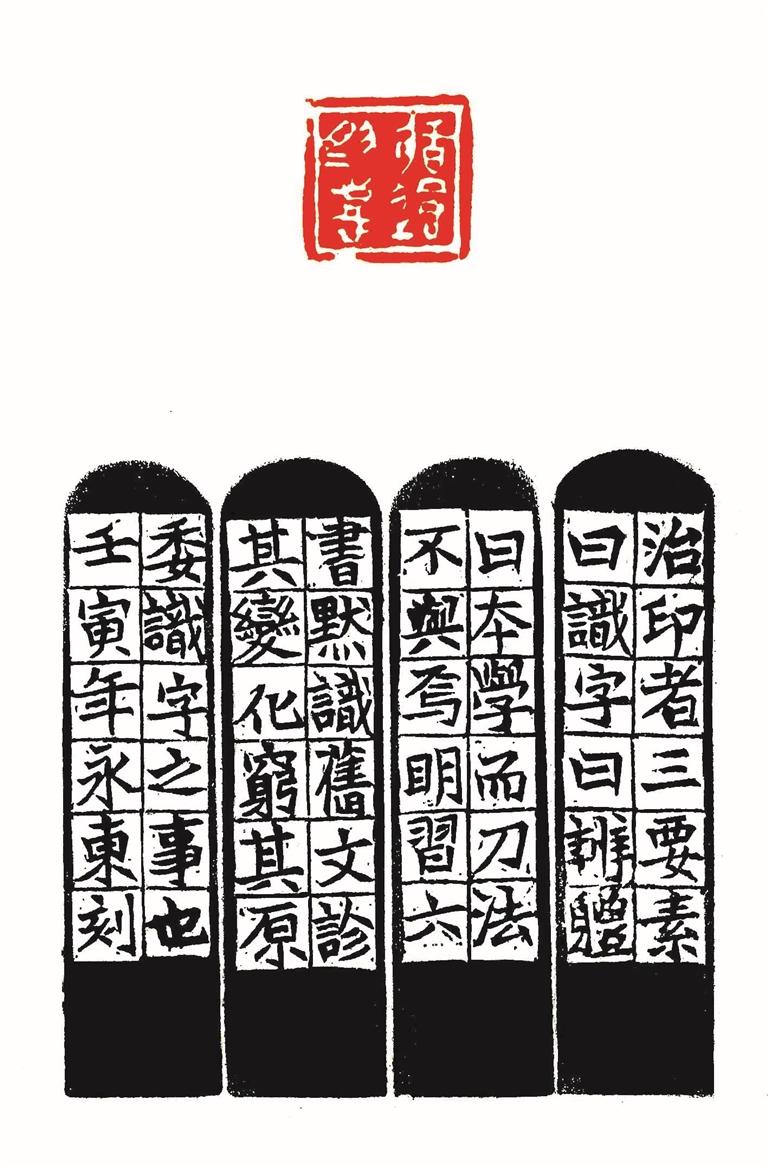 治印者三要素
曰識字曰辨體
曰本學而刀法
不與焉明習六
書默識舊文診
其變化窮其原
委識字之事也
壬寅年永東刻